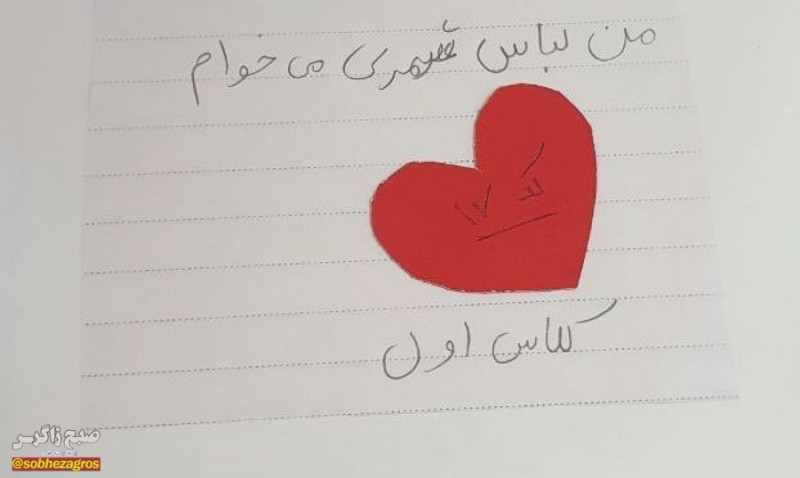 من لباس می خوام
کد ۱۷
کلاس اول
صبح زاگرس
@sobhezagros